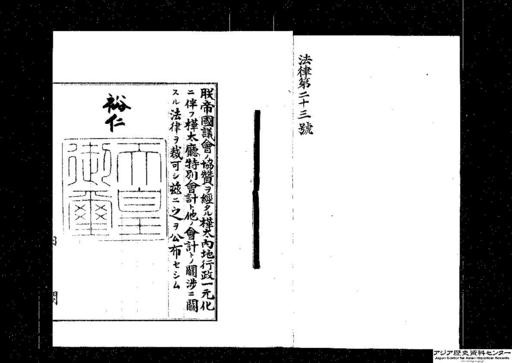 法律第二十三號
朕帝國議會ノ協贊ヲ經タル樺太內地行政一元化
ニ伴フ樺太廳特別會計ト他ノ會計トノ關涉ニ關
スル法律ヲ裁可シ玆ニ之ヲ公布セシム
裕仁
天皇
御璽
內
閣
アジア歴史資料センター
Japan Center for Asian Historical Records